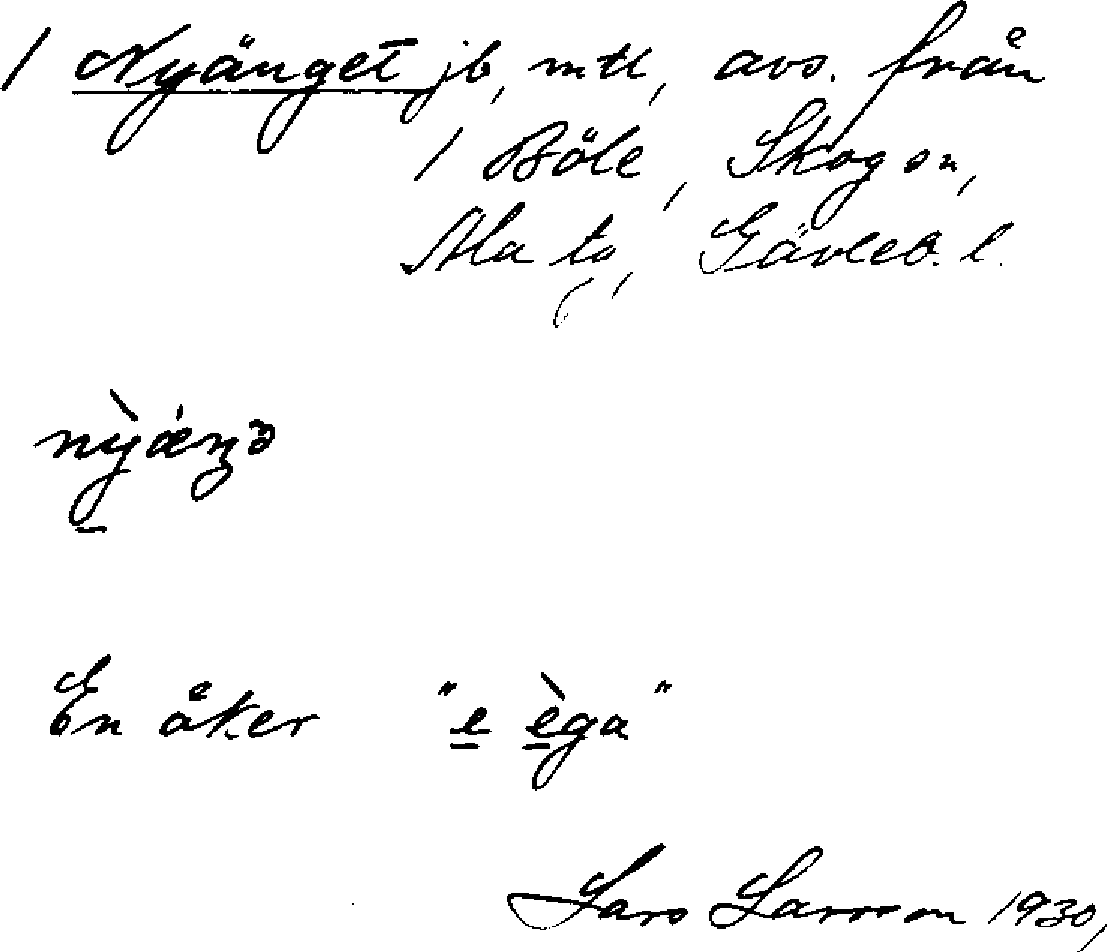 1 Nyänget jb, mtl, avs. från
1 Böle, Skogen,
Ala to, Gävleb. l.
nỳǽŋə
En åker "e èga"
Lars Larsson 1930,